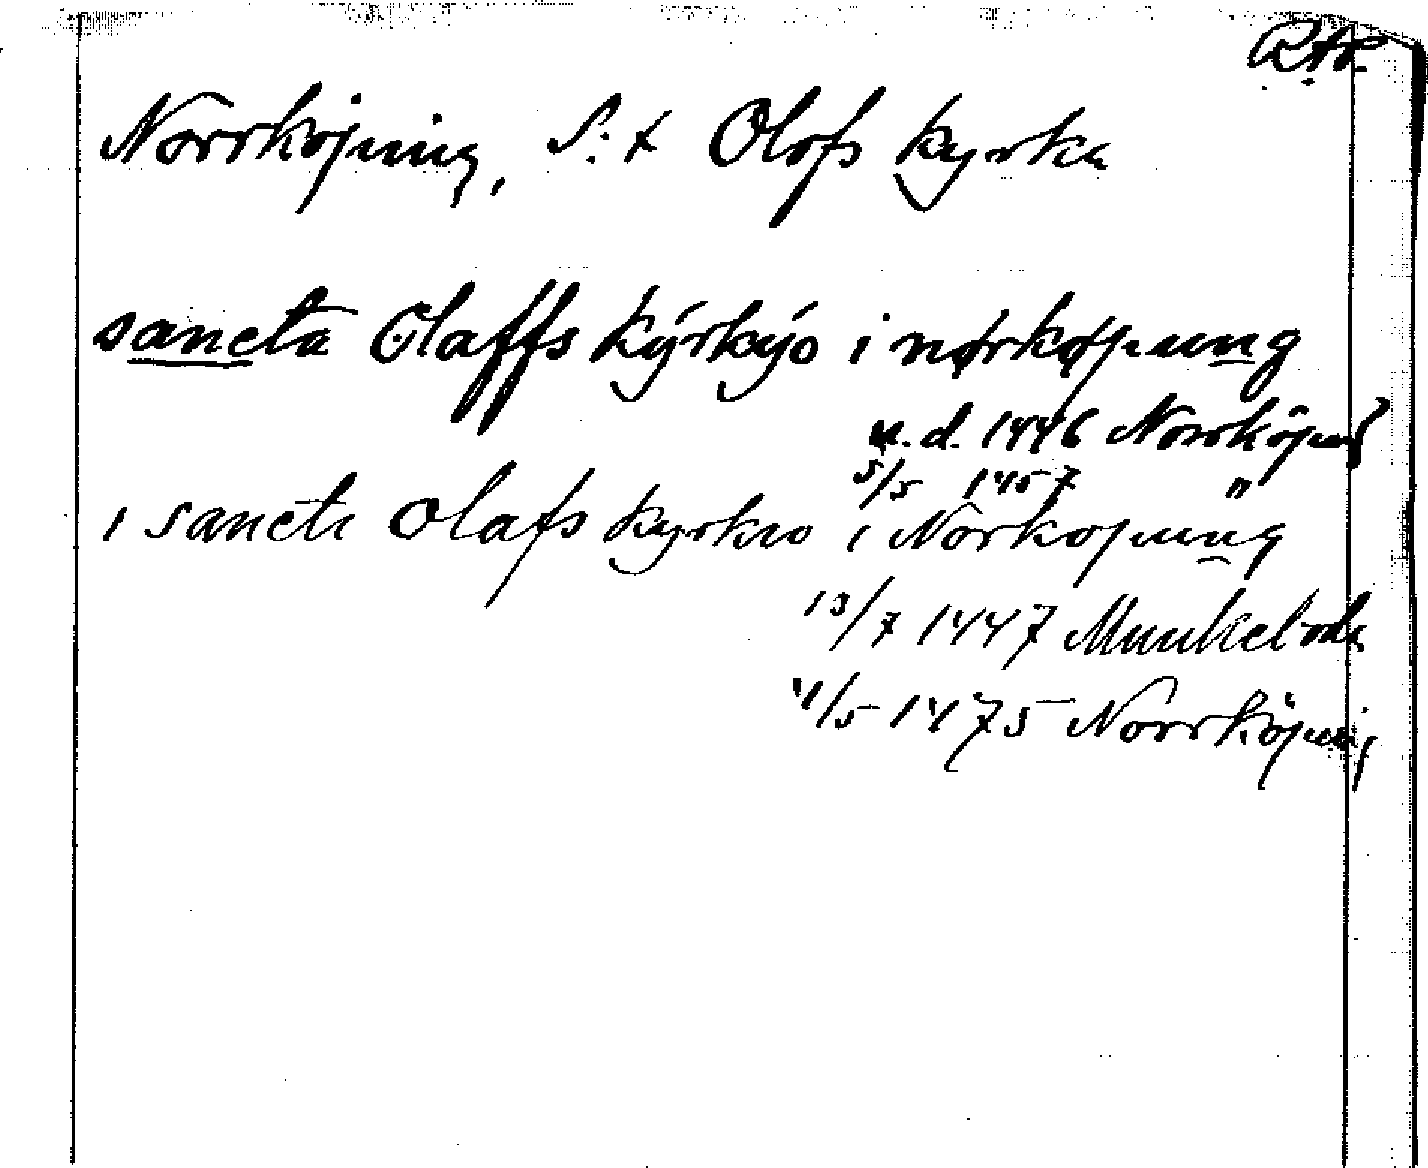 RAP.
Norrköping, S:t Olofs kyrka
sancta Olaffs kýrkýo i nørkøpung
u. d. 1446 Norrköping
5/5 1457 "
i sancte Olafs kyrkio i Norkopung
13/7 1447 Munkeboda
4/5 1475 Norrköping